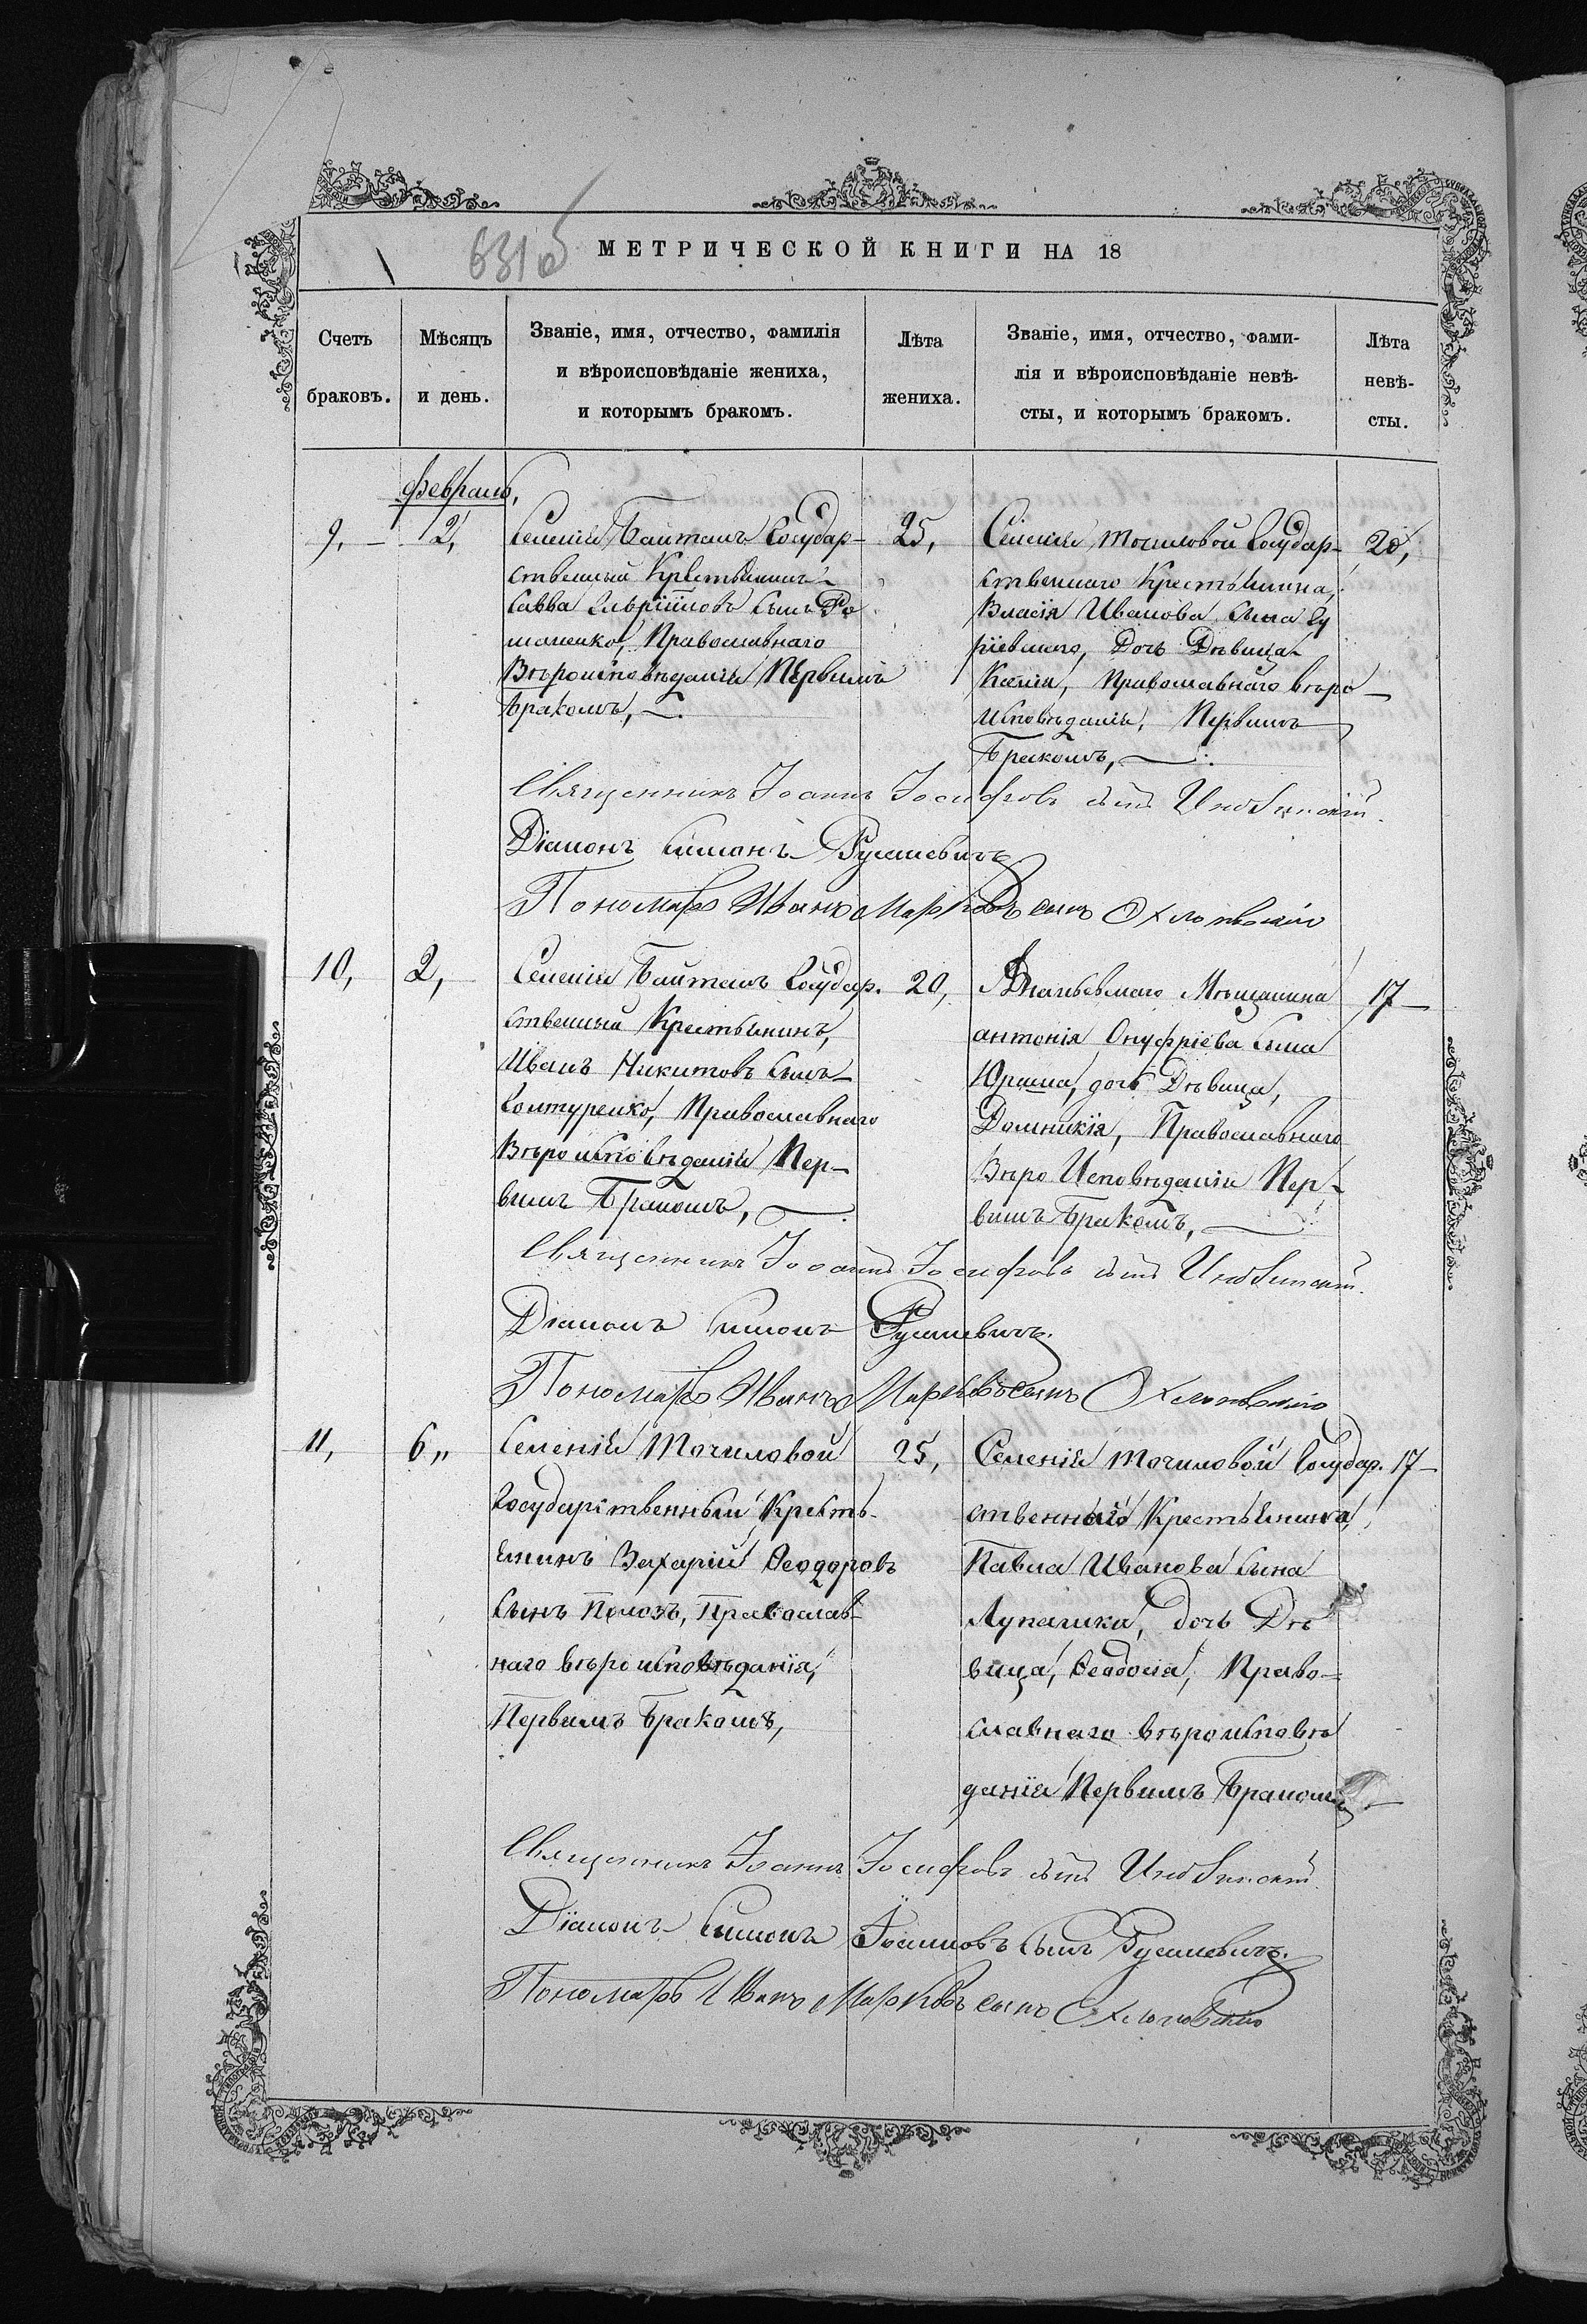 631 об
МЕТРИЧЕСКОЙ КНИГИ НА 18
Счетъ браковъ.
Мѣсяцъ и день.
Званіе, имя, отчество, фамилія
и вѣроисповѣданіе жениха,
и которымъ бракомъ.
Лѣта жениха.
Званіе, имя, отчество, фами-
лія и вѣроисповѣданіе невѣ-
сты, и которымъ бракомъ.
Лѣта невѣ-
сты.
Февраль,
9, 2,
Селенія Байталъ Государ-
ственный Крестьянинъ
Савва сынъ Ро
маненко, Православнаго
Вѣроисповѣданія Первимъ
Бракомъ,
25,
Селенія Точиловой Государ-
ственнаго Крестьянина,
Власія Иванова сына
Дочь Дѣвица
Ксенія, Православнаго вѣро
исповѣданія, Первимъ
Бракомъ,
20,
Священникъ Іоаннъ Іосифовъ сынъ
Діаконъ Симонъ
Пономарь Иванъ Марковъ сынъ
10, 2,
Селенія Байталъ Государ.
ственный Крестьянинъ,
Иванъ Никитовъ сынъ
Православнаго
Вѣроисповѣданія Пер-
вимъ Бракомъ,
20,
Ананьевскаго Мѣщанина
антонія Онуфріева сына
Юраша, дочь Дѣвица,
Домникія, Православнаго
Вѣро Исповѣданія Пер-
вимъ Бракомъ,
17
Священникъ Іоаннъ Іосифовъ сынъ
Діаконъ Симонъ
Пономарь Иванъ Марковъ сынъ
11, 6,,
Селенія Точиловой
Государственный Кресть-
янинъ Захарій Ѳеодоровъ
сынъ Полозъ, Православ-
наго вѣроисповѣданія,
Первимъ Бракомъ,
25,
Селенія Точиловой Государ.
ственнаго Крестьянина,
Павла Иванова сына
Лупашка, дочь Дѣ
вица, Ѳеодосія, Право-
славнаго вѣроисповѣ
данія Первимъ Бракомъ
17
Священникъ Іоаннъ Іосифовъ сынъ
Діаконъ Симонъ Іоанновъ сынъ
Пономарь Иванъ Марковъ сынъ